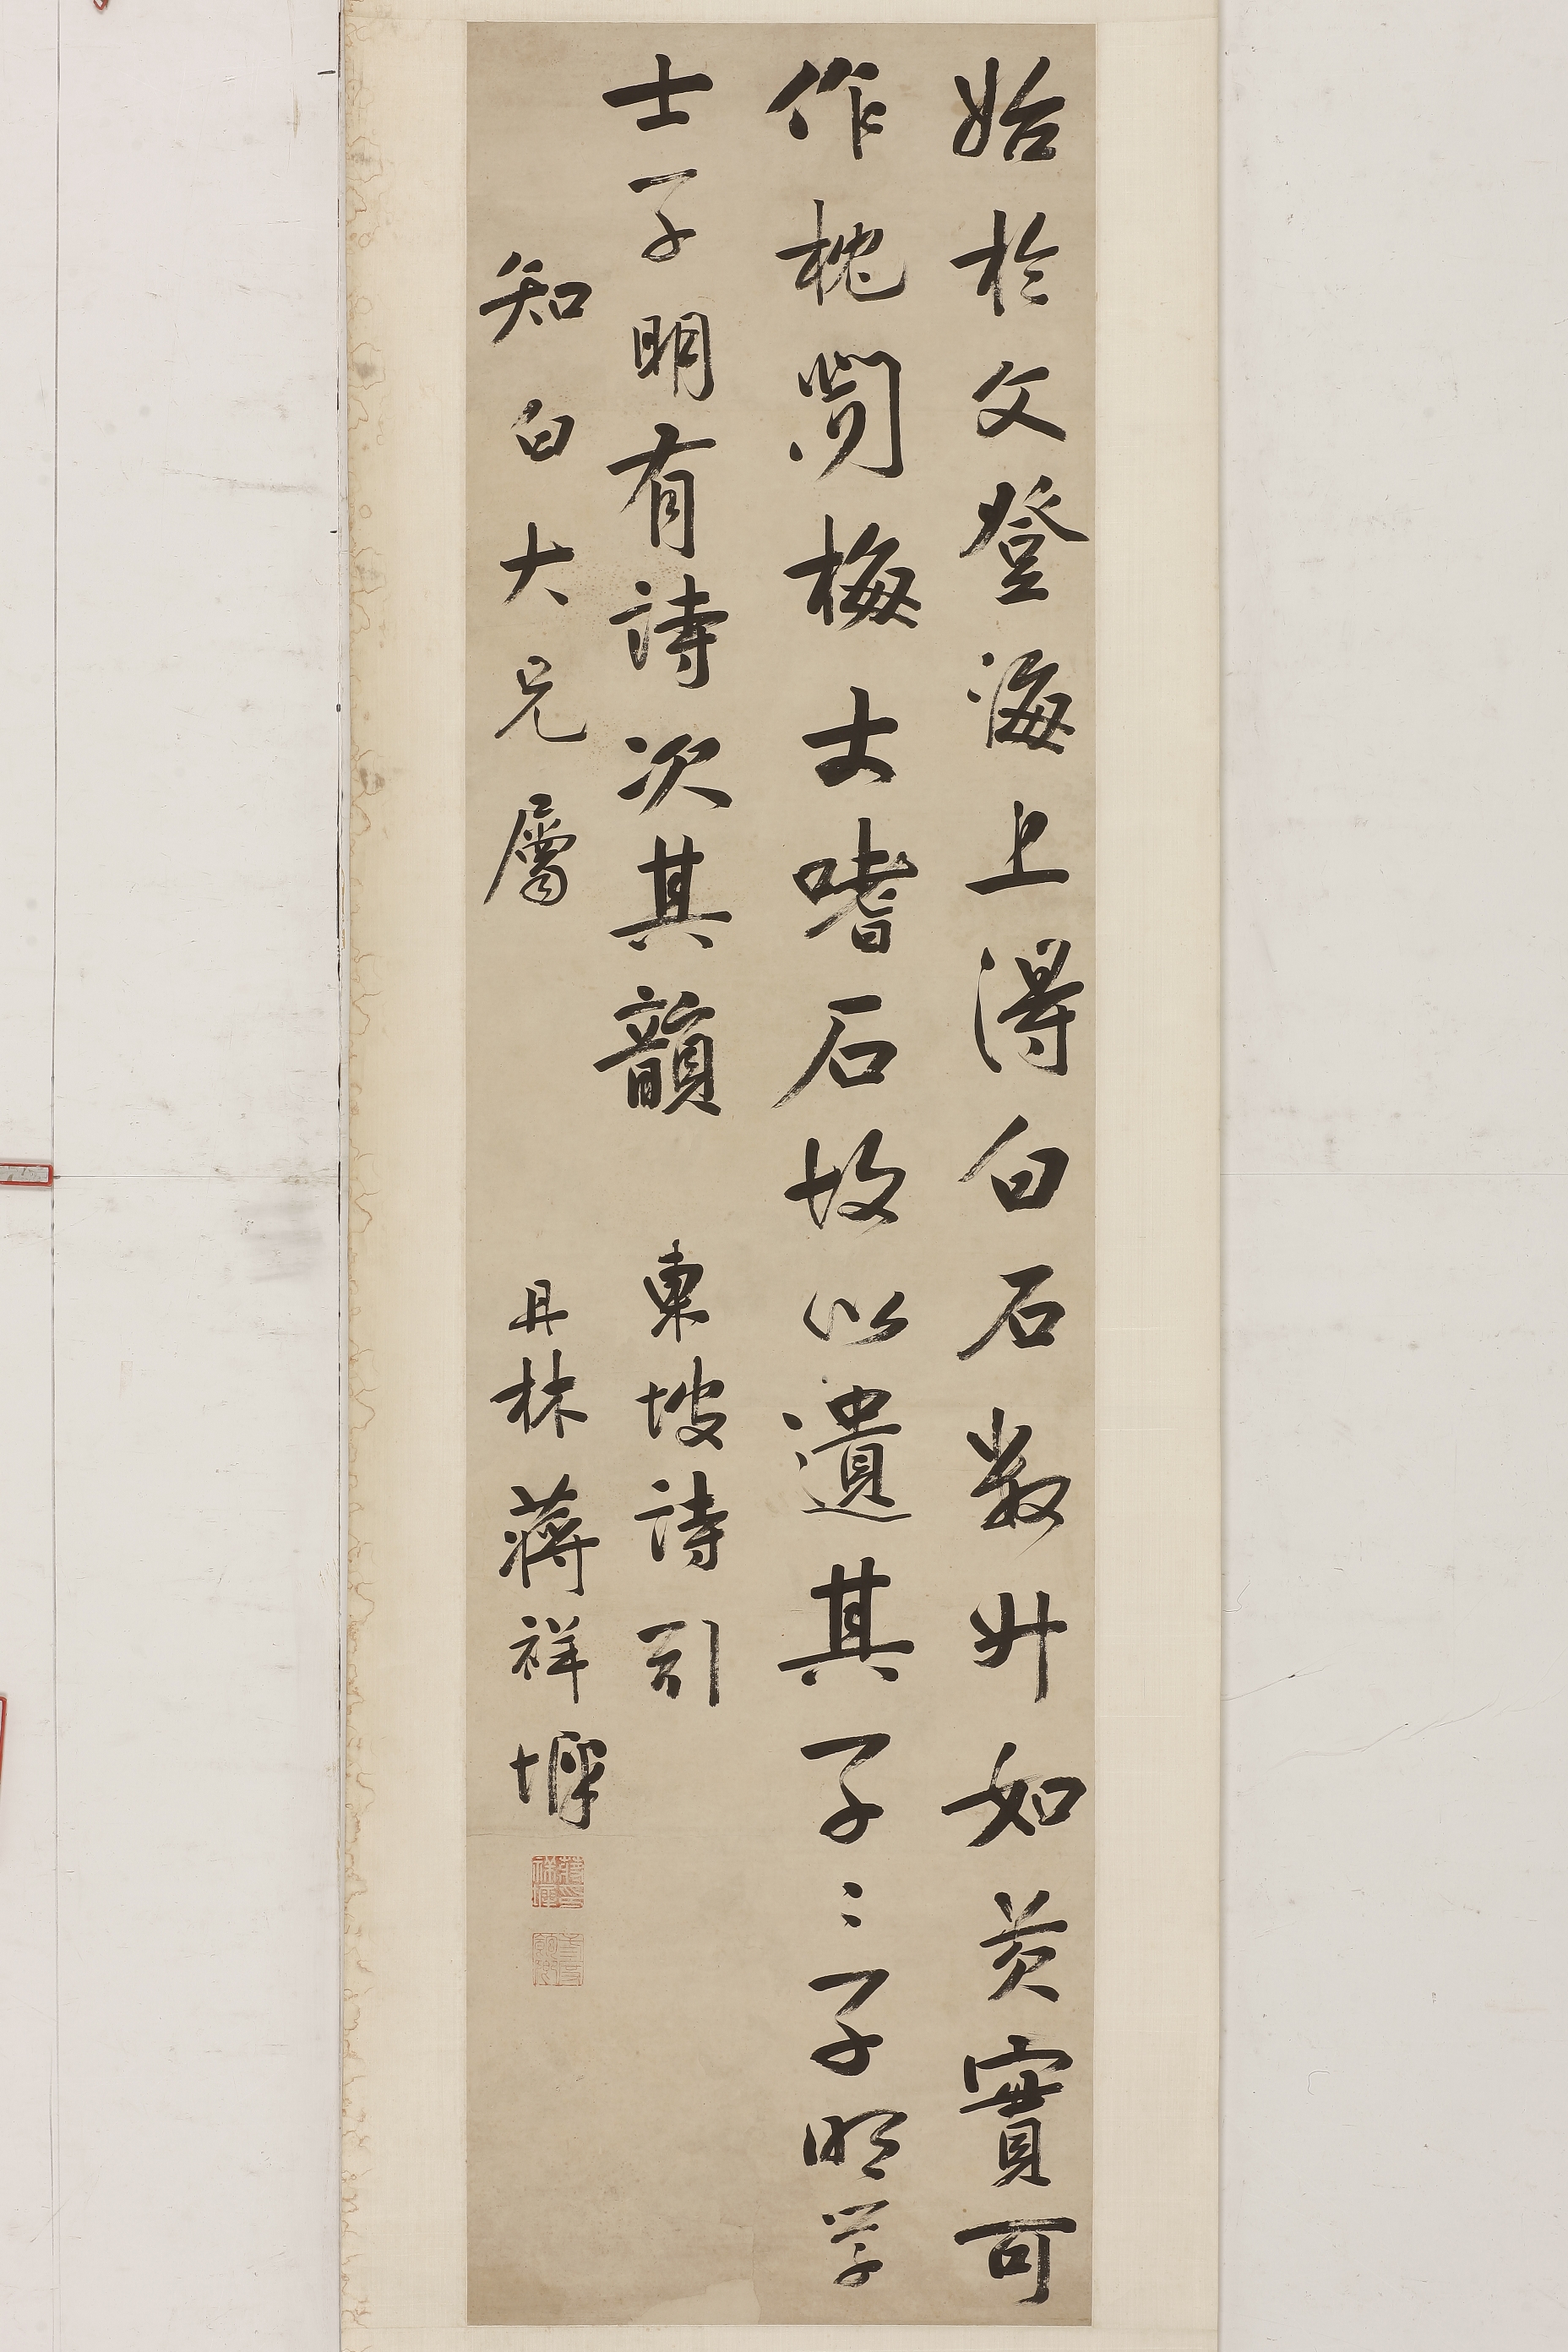 始於文登海上得白石數升如芡實可
作枕聞梅丈嗜石故以遺其子〻子明學
士子明有詩次其韻 東坡詩引
知白大兄屬 丹林蔣祥墀
蔣印祥墀